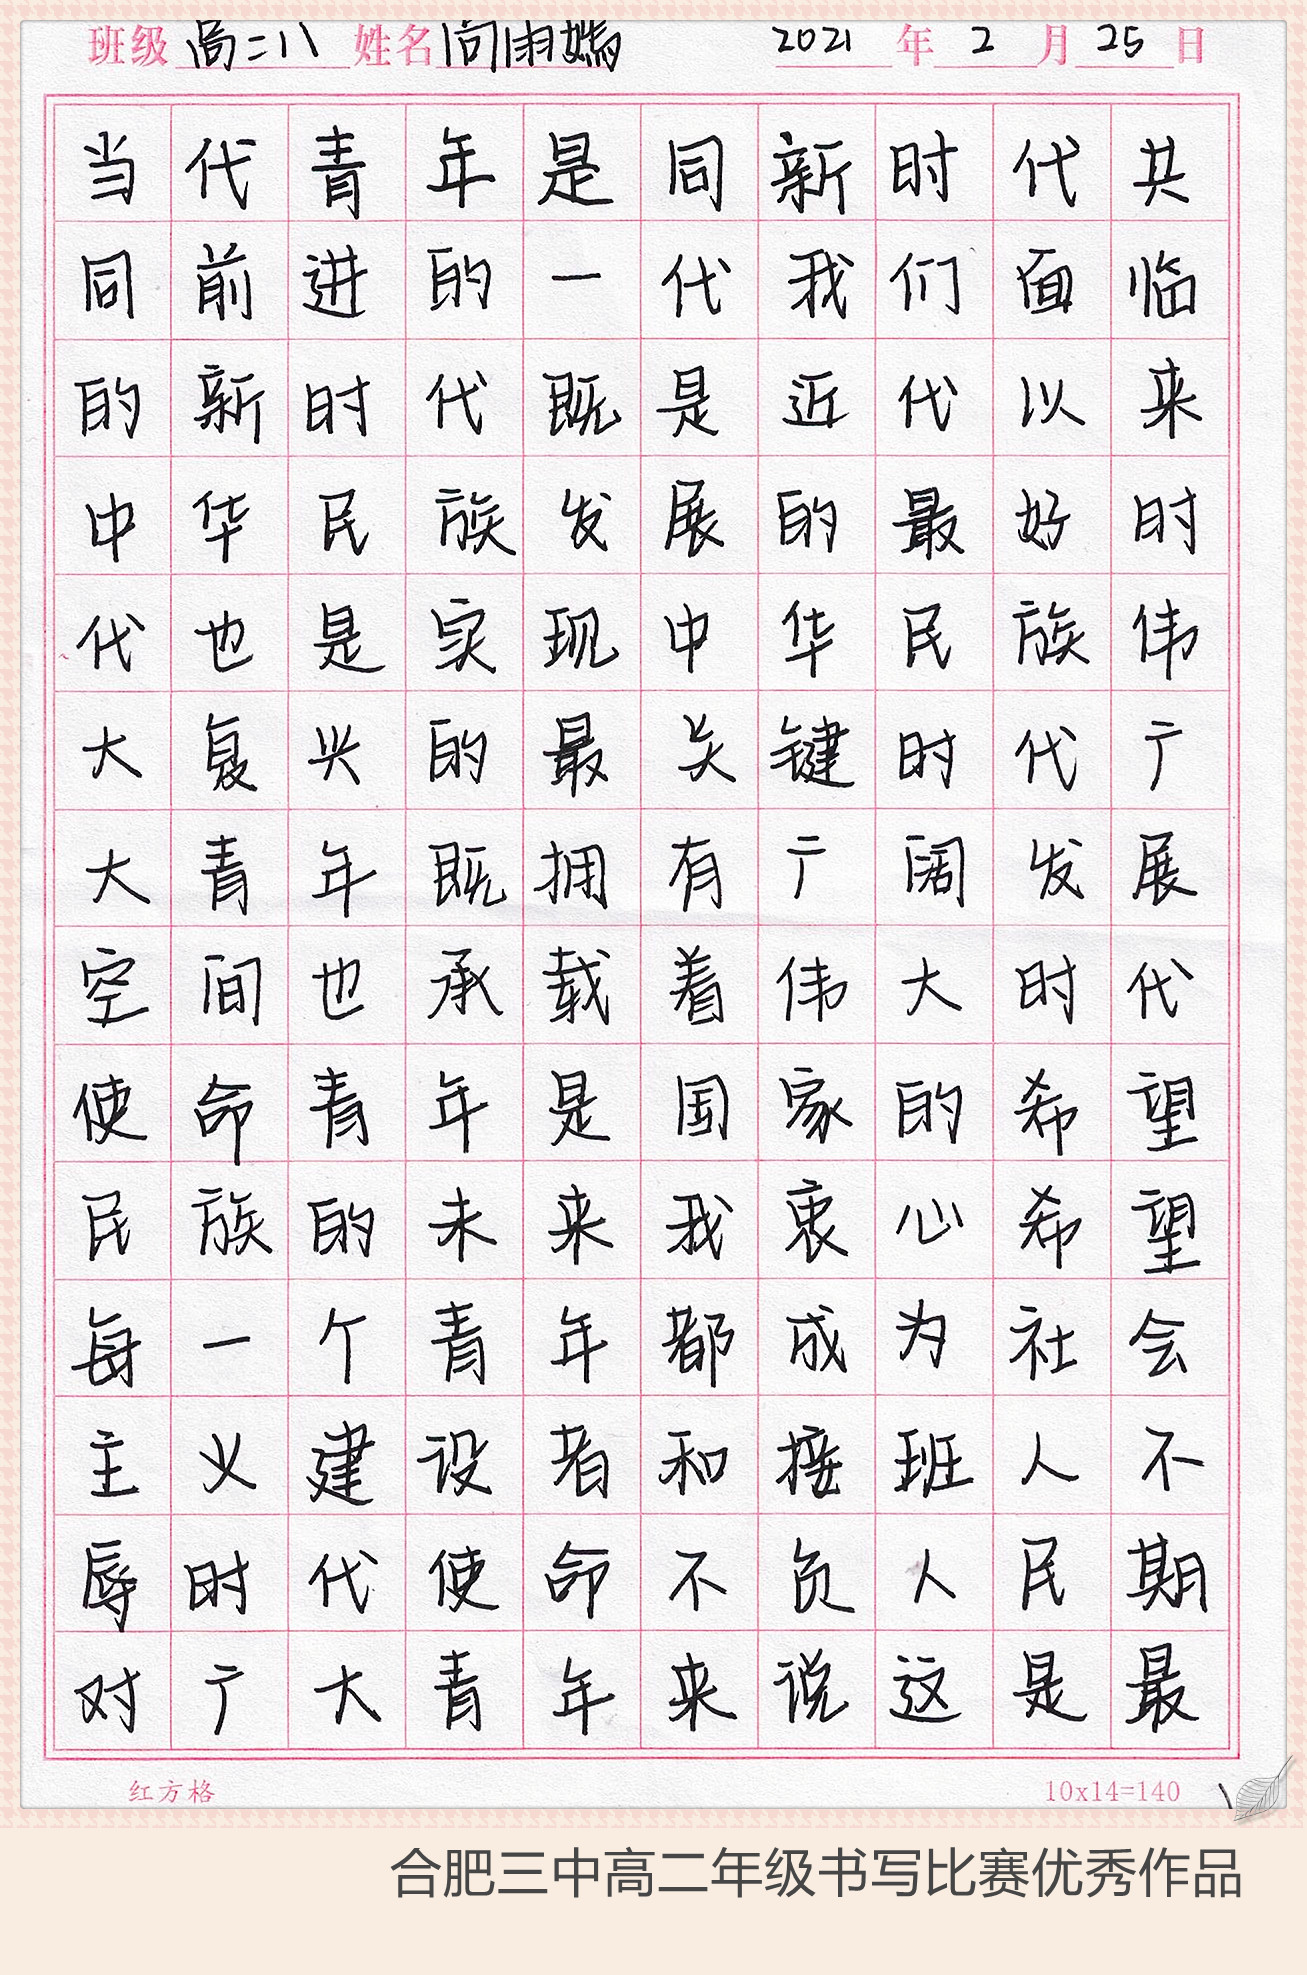 班级 高二八 姓名 闫雨嫣 2021 年 2 月 25 日
当代青年是同新时代共
同前进的一代我们面临
的新时代既是近代以来
中华民族发展的最好时
代也是实现中华民族伟
大复兴的最关键时代广
大青年既拥有广阔发展
空间也承载着伟大时代
使命青年是国家的希望
民族的未来我衷心希望
每一个青年都成为社会
主义建设者和接班人不
辱时代使命不负人民期
对广大青年来说这是最
红方格 10x14=140
合肥三中高二年级书写比赛优秀作品